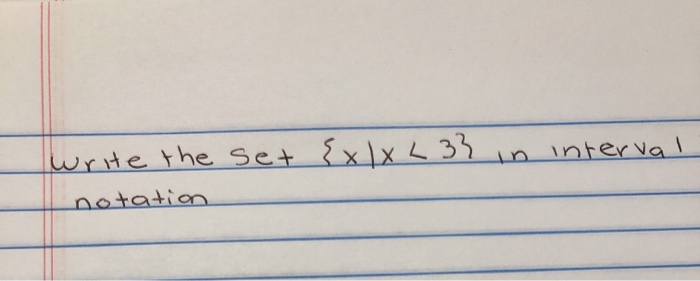 Write the set {x|x < 3} in interval
notation